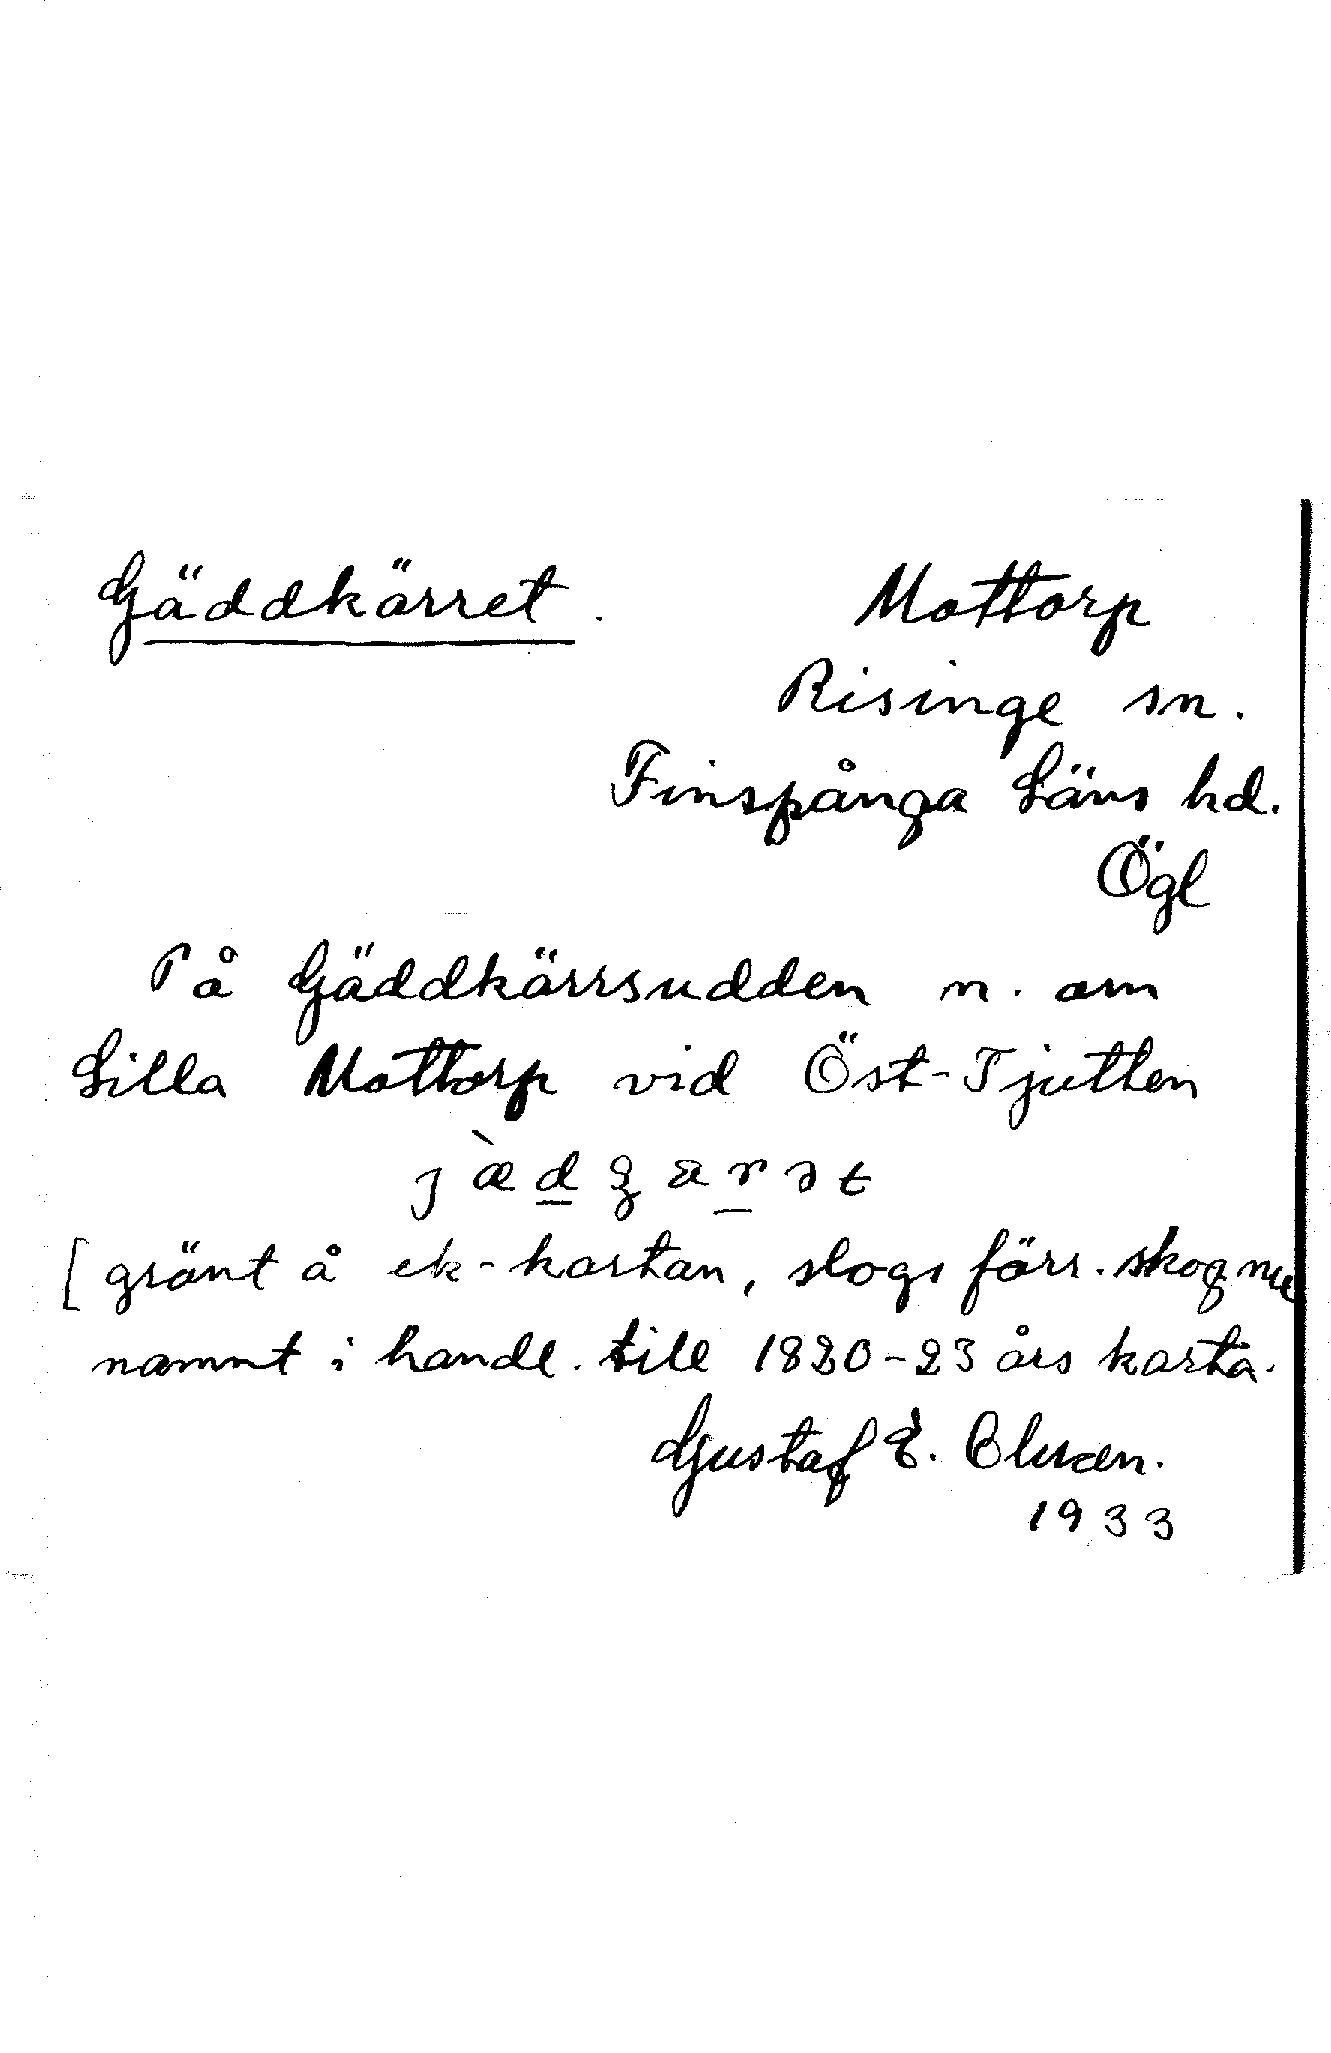 Gäddkärret. Mottorp
Risinge sn.
Finspånga Läns hd.
Ögl
På Gäddkärrsudden n. om
Lilla Mottorp vid Öst-Tjutten
[grönt å ek-kartan, slogs förr. skog nu
namnt i handl. till 1820-23 års karta.
Gustaf E.
1933